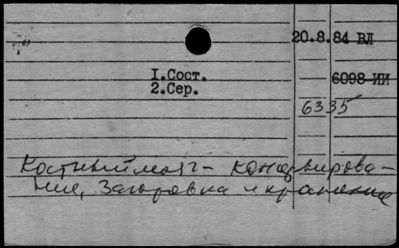 20.8.84 ВЛ
1.Сост.
6098-ИИ
2.Сер.
6335
Костный мозг - консервирова-
ние, Заготовка и хранение